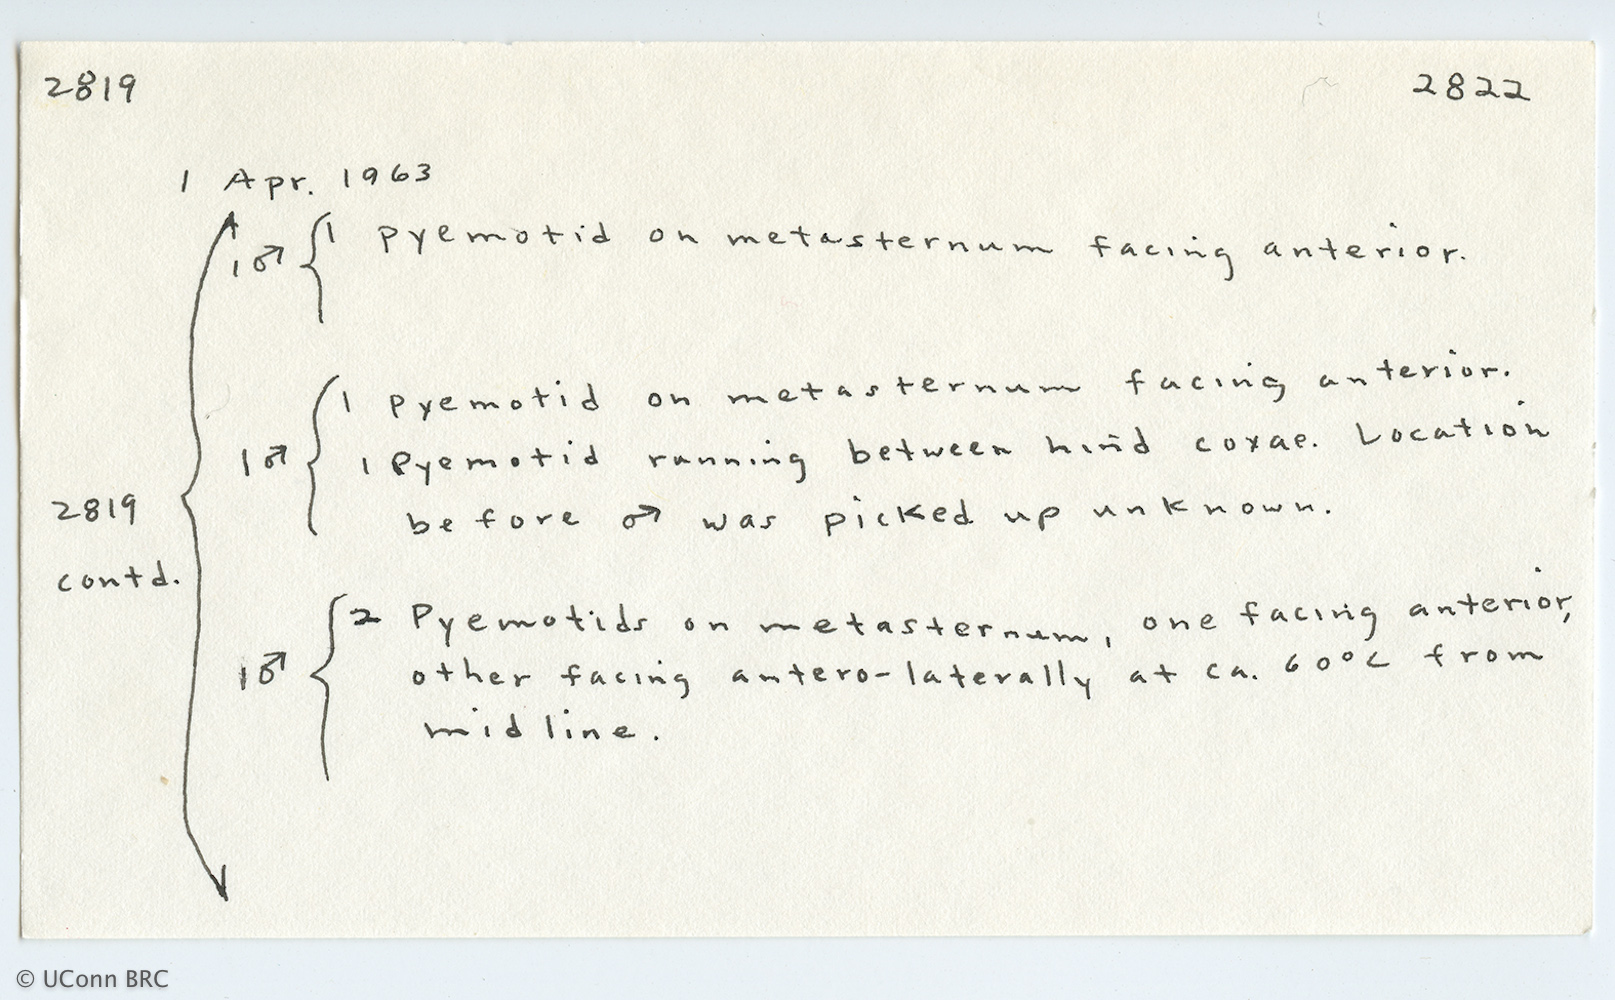 2819 2822
1 Apr. 1963
1♂ { 1 Pyemotid on metasternum facing anterior.
1♂ { 1 Pyemotid on metasternum facing anterior.
1 Pyemotid running between hind coxae. Location
before ♂ was picked up unknown.
2819
contd.
1♂ { 2 Pyemotids on metasternum, one facing anterior,
other facing antero-laterally at ca. 60°∠ from
midline.
© UConn BRC